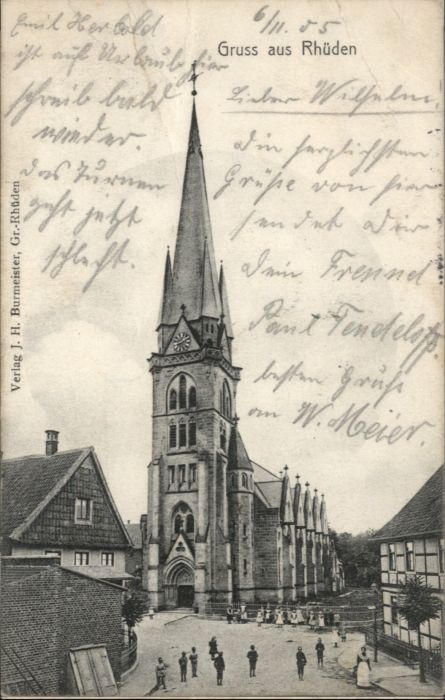 Emil Herbold
ist auf Urlaub hier
schreib bald
wieder.
das Turnen
geht jetzt
schlecht.
6/11. 05
Gruss aus Rhüden
Lieber Wilhelm
Die herzlichsten
Grüße von hier
sendet Dir
Dein Freund
Paul
besten Gruß
an W. Meier.
Verlag J. H. Burmeister, Gr.-Rhüden